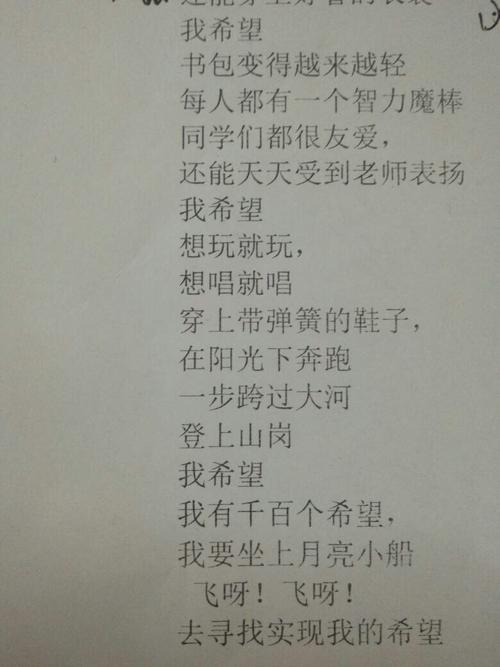 还能穿上好看的衣裳
我希望
书包变得越来越轻
每人都有一个智力魔棒
同学们都很友爱，
还能天天受到老师表扬
我希望
想玩就玩，
想唱就唱
穿上带弹簧的鞋子，
在阳光下奔跑
一步跨过大河
登上山岗
我希望
我有千百个希望，
我要坐上月亮小船
飞呀！飞呀！
去寻找实现我的希望